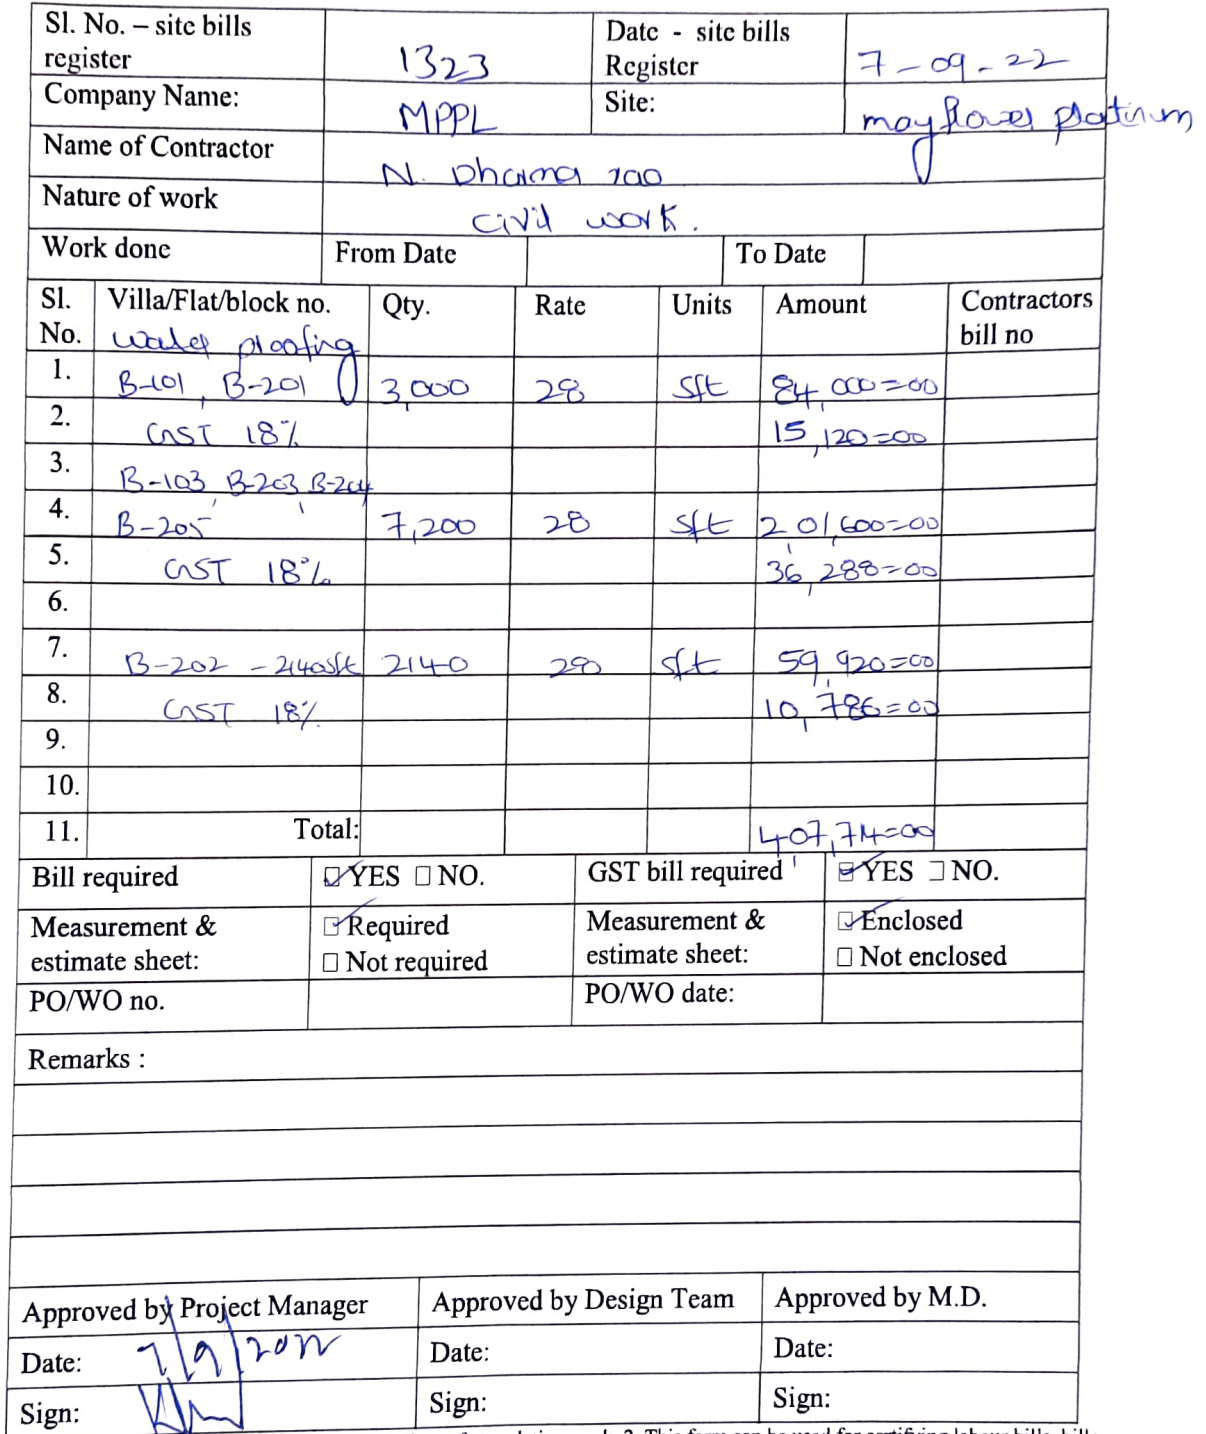 Sl. No. – site bills register 1323 Date - site bills Register 7-09-22
Company Name: MPPL Site: mayflower platinum
Name of Contractor N. Dharma rao
Nature of work civil work.
Work done From Date To Date
Sl. No. Villa/Flat/block no. Qty. Rate Units Amount Contractors bill no
water proofing
1. B-101, B-201 3,000 28 Sft 84,000=00
2. GST 18% 15,120=00
3. B-103, B-203, B-204
4. B-205 7,200 28 Sft 2,01,600=00
5. GST 18% 36,288=00
6.
7. B-202 - 2140sft 2140 28 Sft 59,920=00
8. GST 18% 10,786=00
9.
10.
11. Total: 407,714=00
Bill required YES NO. GST bill required YES NO.
Measurement & estimate sheet: Required Not required Measurement & estimate sheet: Enclosed Not enclosed
PO/WO no. PO/WO date:
Remarks :
Approved by Project Manager Approved by Design Team Approved by M.D.
Date: 7/9/2022 Date: Date:
Sign: Sign: Sign: